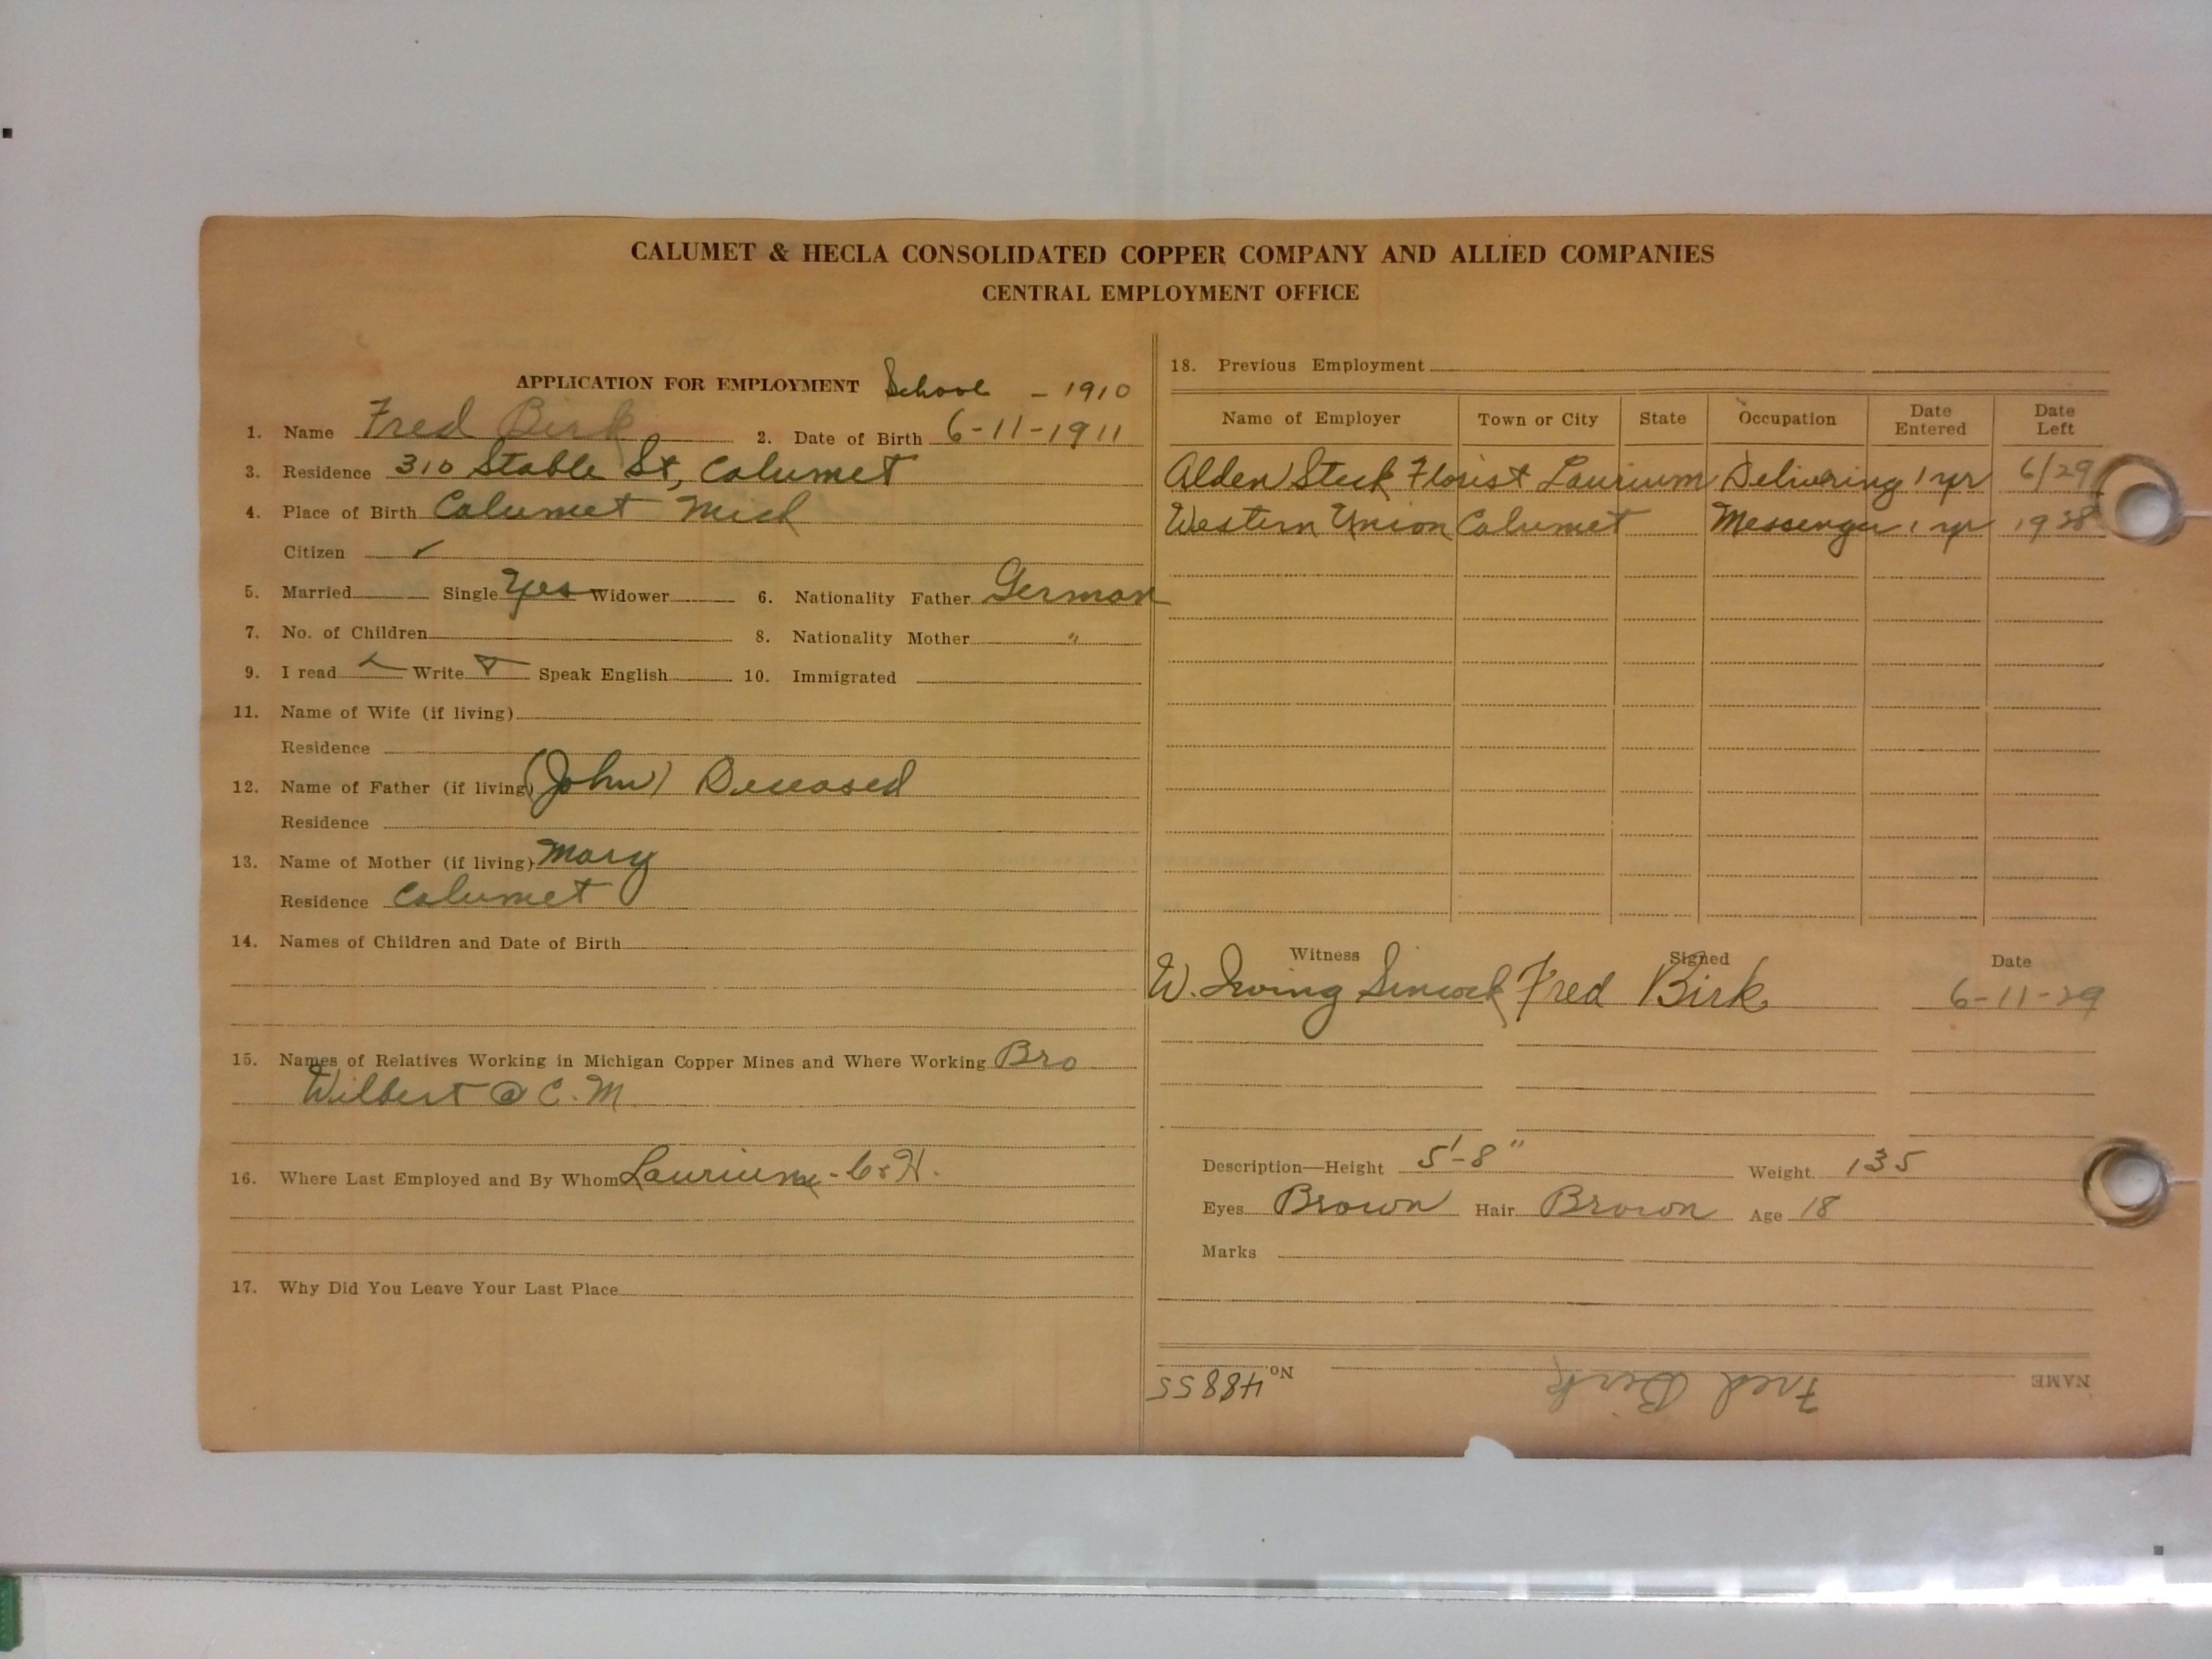 CALUMET & HECLA CONSOLIDATED COPPER COMPANY AND ALLIED COMPANIES
CENTRAL EMPLOYMENT OFFICE
APPLICATION FOR EMPLOYMENT School - 1910
1. Name Fred Birk 2. Date of Birth 6-11-1911
3. Residence 310 Stable St, Calumet
4. Place of Birth Calumet Mich
Citizen ✓
5. Married Single Yes Widower 6. Nationality Father German
7. No. of Children 8. Nationality Mother "
9. I read Write Speak English 10. Immigrated
11. Name of Wife (if living)
Residence
12. Name of Father (if living) (John) Deceased
Residence
13. Name of Mother (if living) Mary
Residence Calumet
14. Names of Children and Date of Birth
15. Names of Relatives Working in Michigan Copper Mines and Where Working Bro
Wilbert @ C. M
16. Where Last Employed and By Whom Laurium -
17. Why Did You Leave Your Last Place
18. Previous Employment
Name of Employer Town or City State Occupation Date Entered Date Left
Alden Steck Florist Laurium Delivering 1 yr 6/29
Western Union Calumet Messenger 1 yr
Witness Signed Date
W. Irving Sincock Fred Birk 6-11-29
Description—Height 5'-8" Weight 135
Eyes Brown Hair Brown Age 18
Marks
NAME Fred Birk No. 48855